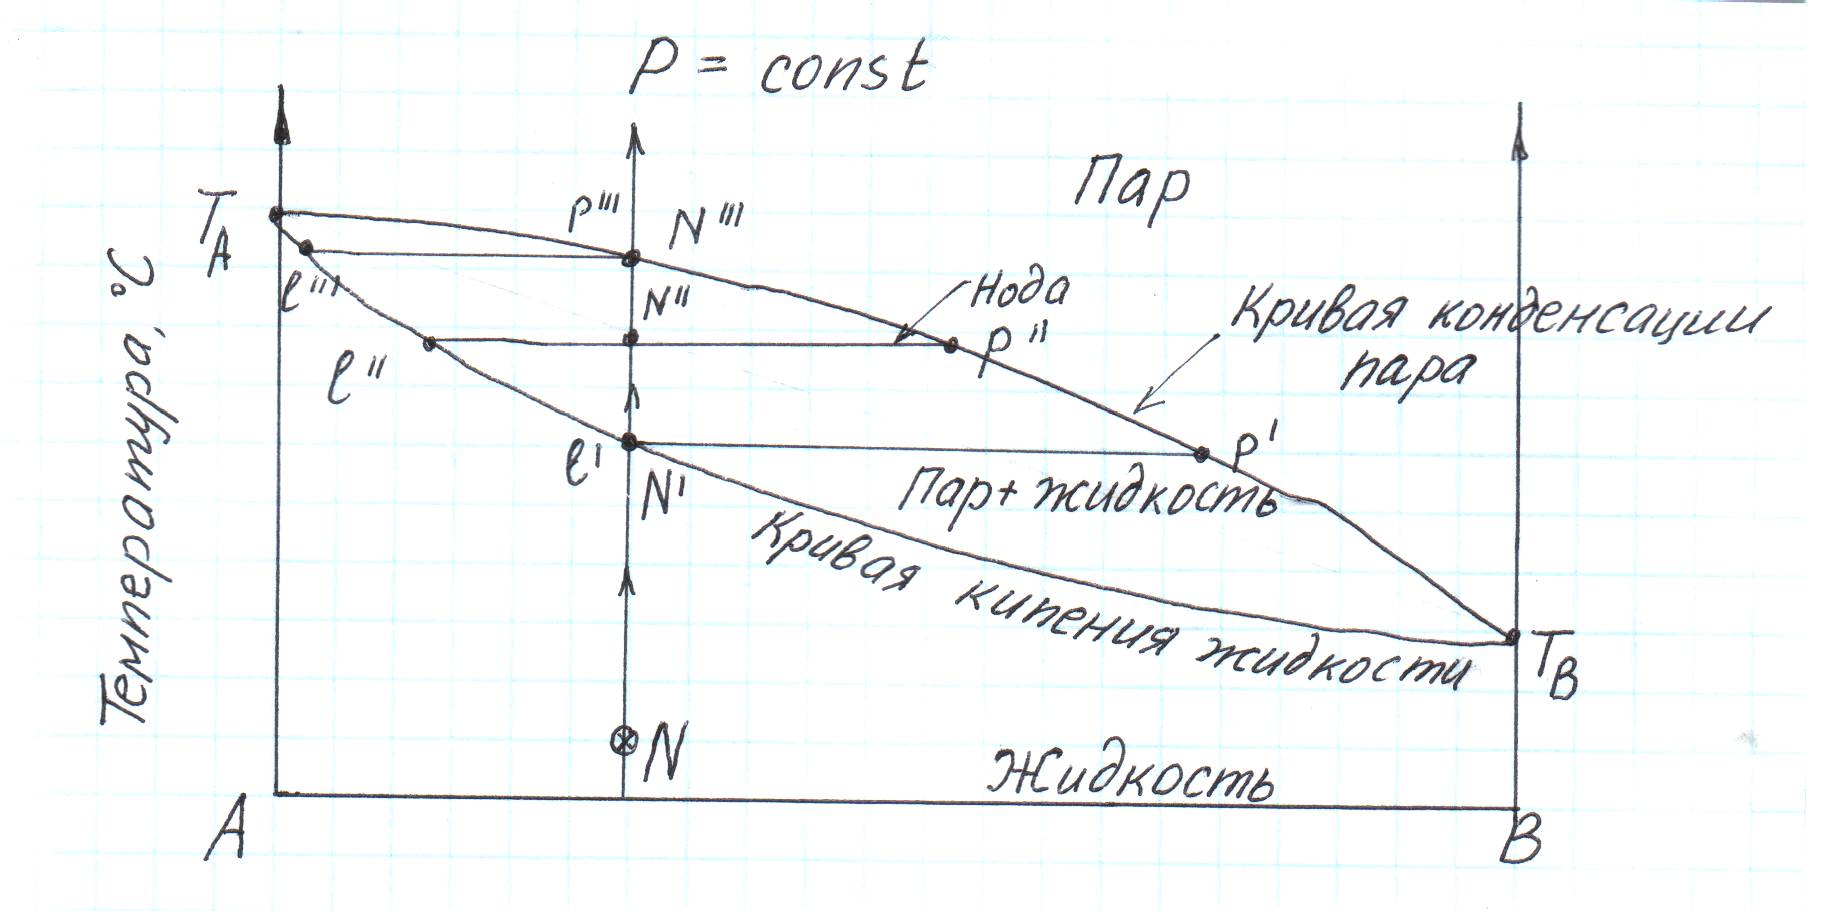 P = const
Пар
T_A
P'''
N'''
l'''
N''
Нода
P''
Кривая конденсации
пара
l''
l'
N'
P'
Пар + жидкость
Кривая кипения жидкости
T_B
N
Жидкость
A
B
Температура, °C